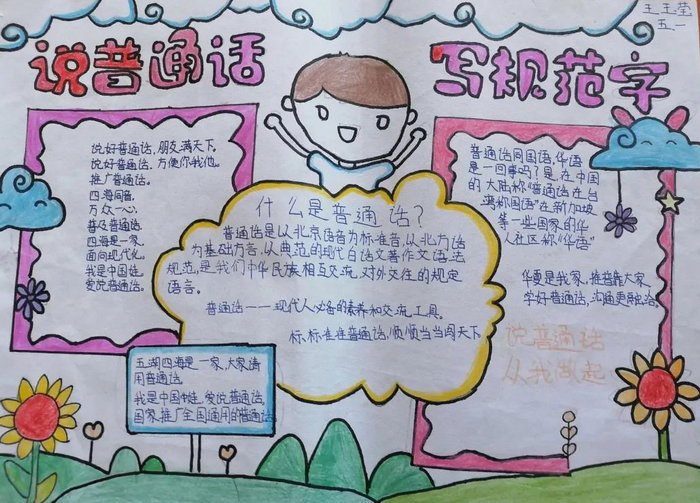 王玉莹
五一
说普通话 写规范字
说好普通话，朋友满天下。
说好普通话，方便你我他。
推广普通话。
四海同音，
万众一心。
普及普通话
四海是一家，
面向现代化。
我是中国娃，
爱说普通话。
什么是普通话？
普通话是以北京语音为标准音，以北方话
为基础方言，以典范的现代白话文著作文语法
规范，是我们中华民族相互交流、对外交往的规定
语言。
普通话——现代人必备的素养和交流工具。
标标准准普通话，顺顺当当闯天下
普通话同国语，华语
是一回事吗？是，在中国
的大陆称“普通话在台
湾称国语”在新加坡
等一些国家的华
人社区称“华语”
华夏是我家，推普靠大家，
学好普通话，沟通更融洽。
说普通话
从我做起
五湖四海是一家，大家请
用普通话。
我是中国娃，爱说普通话。
国家推广全国通用的普通话。